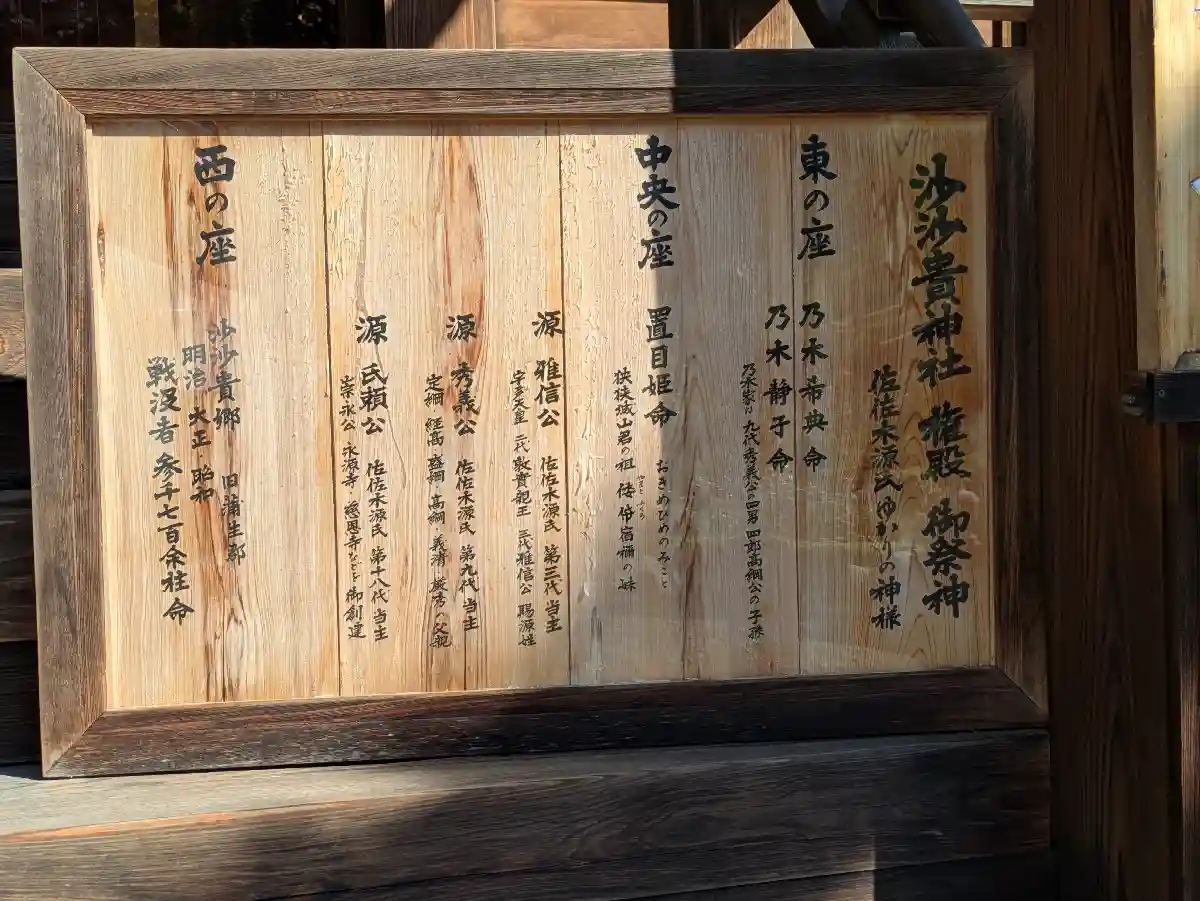 沙沙貴神社 権殿 御祭神
佐佐木源氏ゆかりの神様
東の座 乃木希典命
乃木静子命
乃木家は 九代秀義公の四男 四郎高綱公の子孫
中央の座 置目姫命 おきめひめのみこと
狭狭城山君の祖 倭俗宿禰の妹
源 雅信公 佐佐木源氏 第三代 当主
宇多天皇 二代 敦實親王 三代雅信公 賜源姓
源 秀義公 佐佐木源氏 第九代 当主
定綱・経高・盛綱・高綱・義清・厳秀の父親
源 氏頼公 佐佐木源氏 第十八代 当主
崇永公 永源寺・慈恩寺などを御創建
西の座 沙沙貴郷 旧蒲生郡
明治・大正・昭和
戦没者 参千七百余柱命